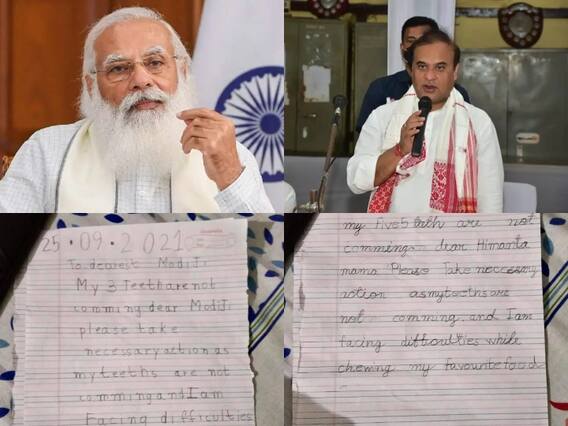 25.09.2021
To dearest Modi Ji
My 3 Teeth are not
comming dear Modi Ji
please take
necessary action as
my teeths are not
comming and I am
Facing difficulties
my Five 5 teeth are not
comming dear Himanta
mama Please Take neccessary
action as my teeths are
not comming and I am
facing difficulties while
chewing my favourite food